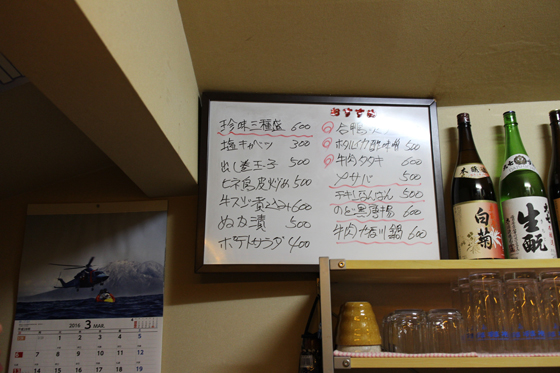 おすすめ
珍味三種盛 600
塩キャベツ 300
出し巻玉子 500
ヒネ鳥皮炒め 500
牛スジ煮込み 600
ぬか漬 500
ポテトサラダ 400
合鴨
ホタルイカ酢味噌 500
牛肉タタキ 600
〆サバ 500
チキンなんばん 500
のど黒唐揚 600
600
本醸
白菊
生酛
2016 3 MAR.
1 2 3 4 5
7 8 9 10 11 12
14 15 16 17 18 19